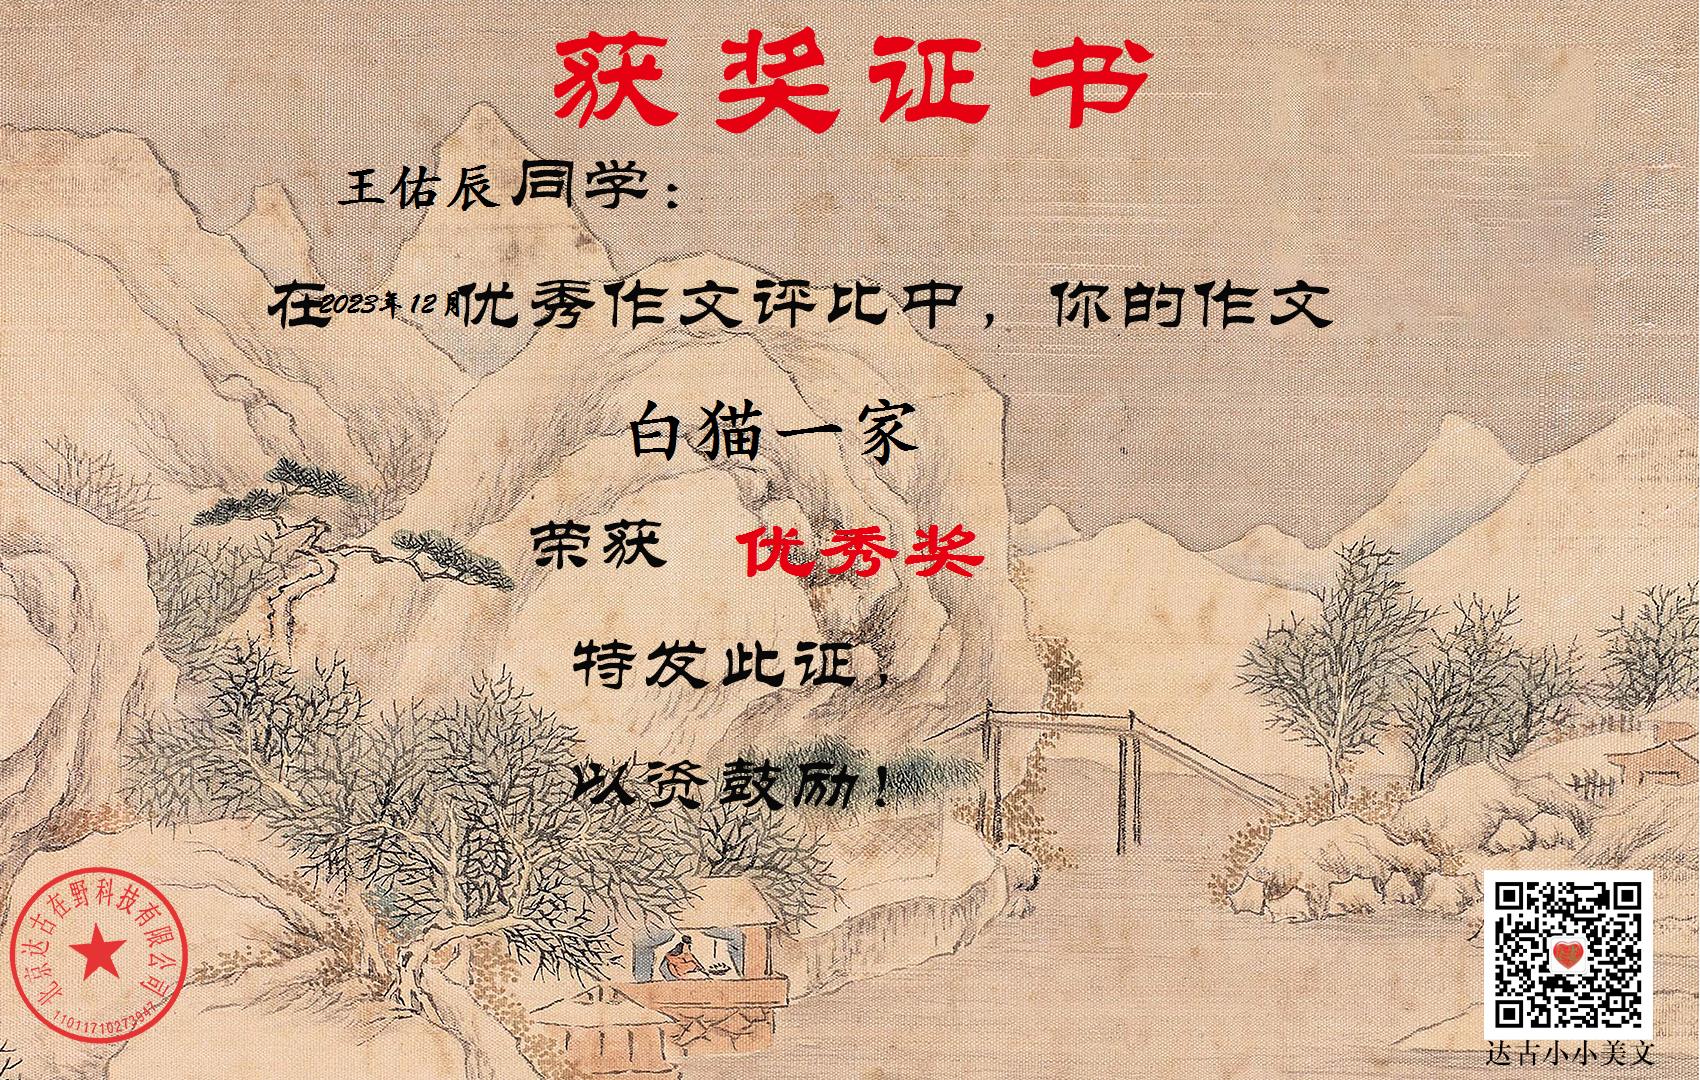 获奖证书
王佑辰同学：
在2023年12月优秀作文评比中，你的作文
白猫一家
荣获 优秀奖
特发此证，
以资鼓励！
北京达古在野科技有限公司
11011710273947
达古小小美文